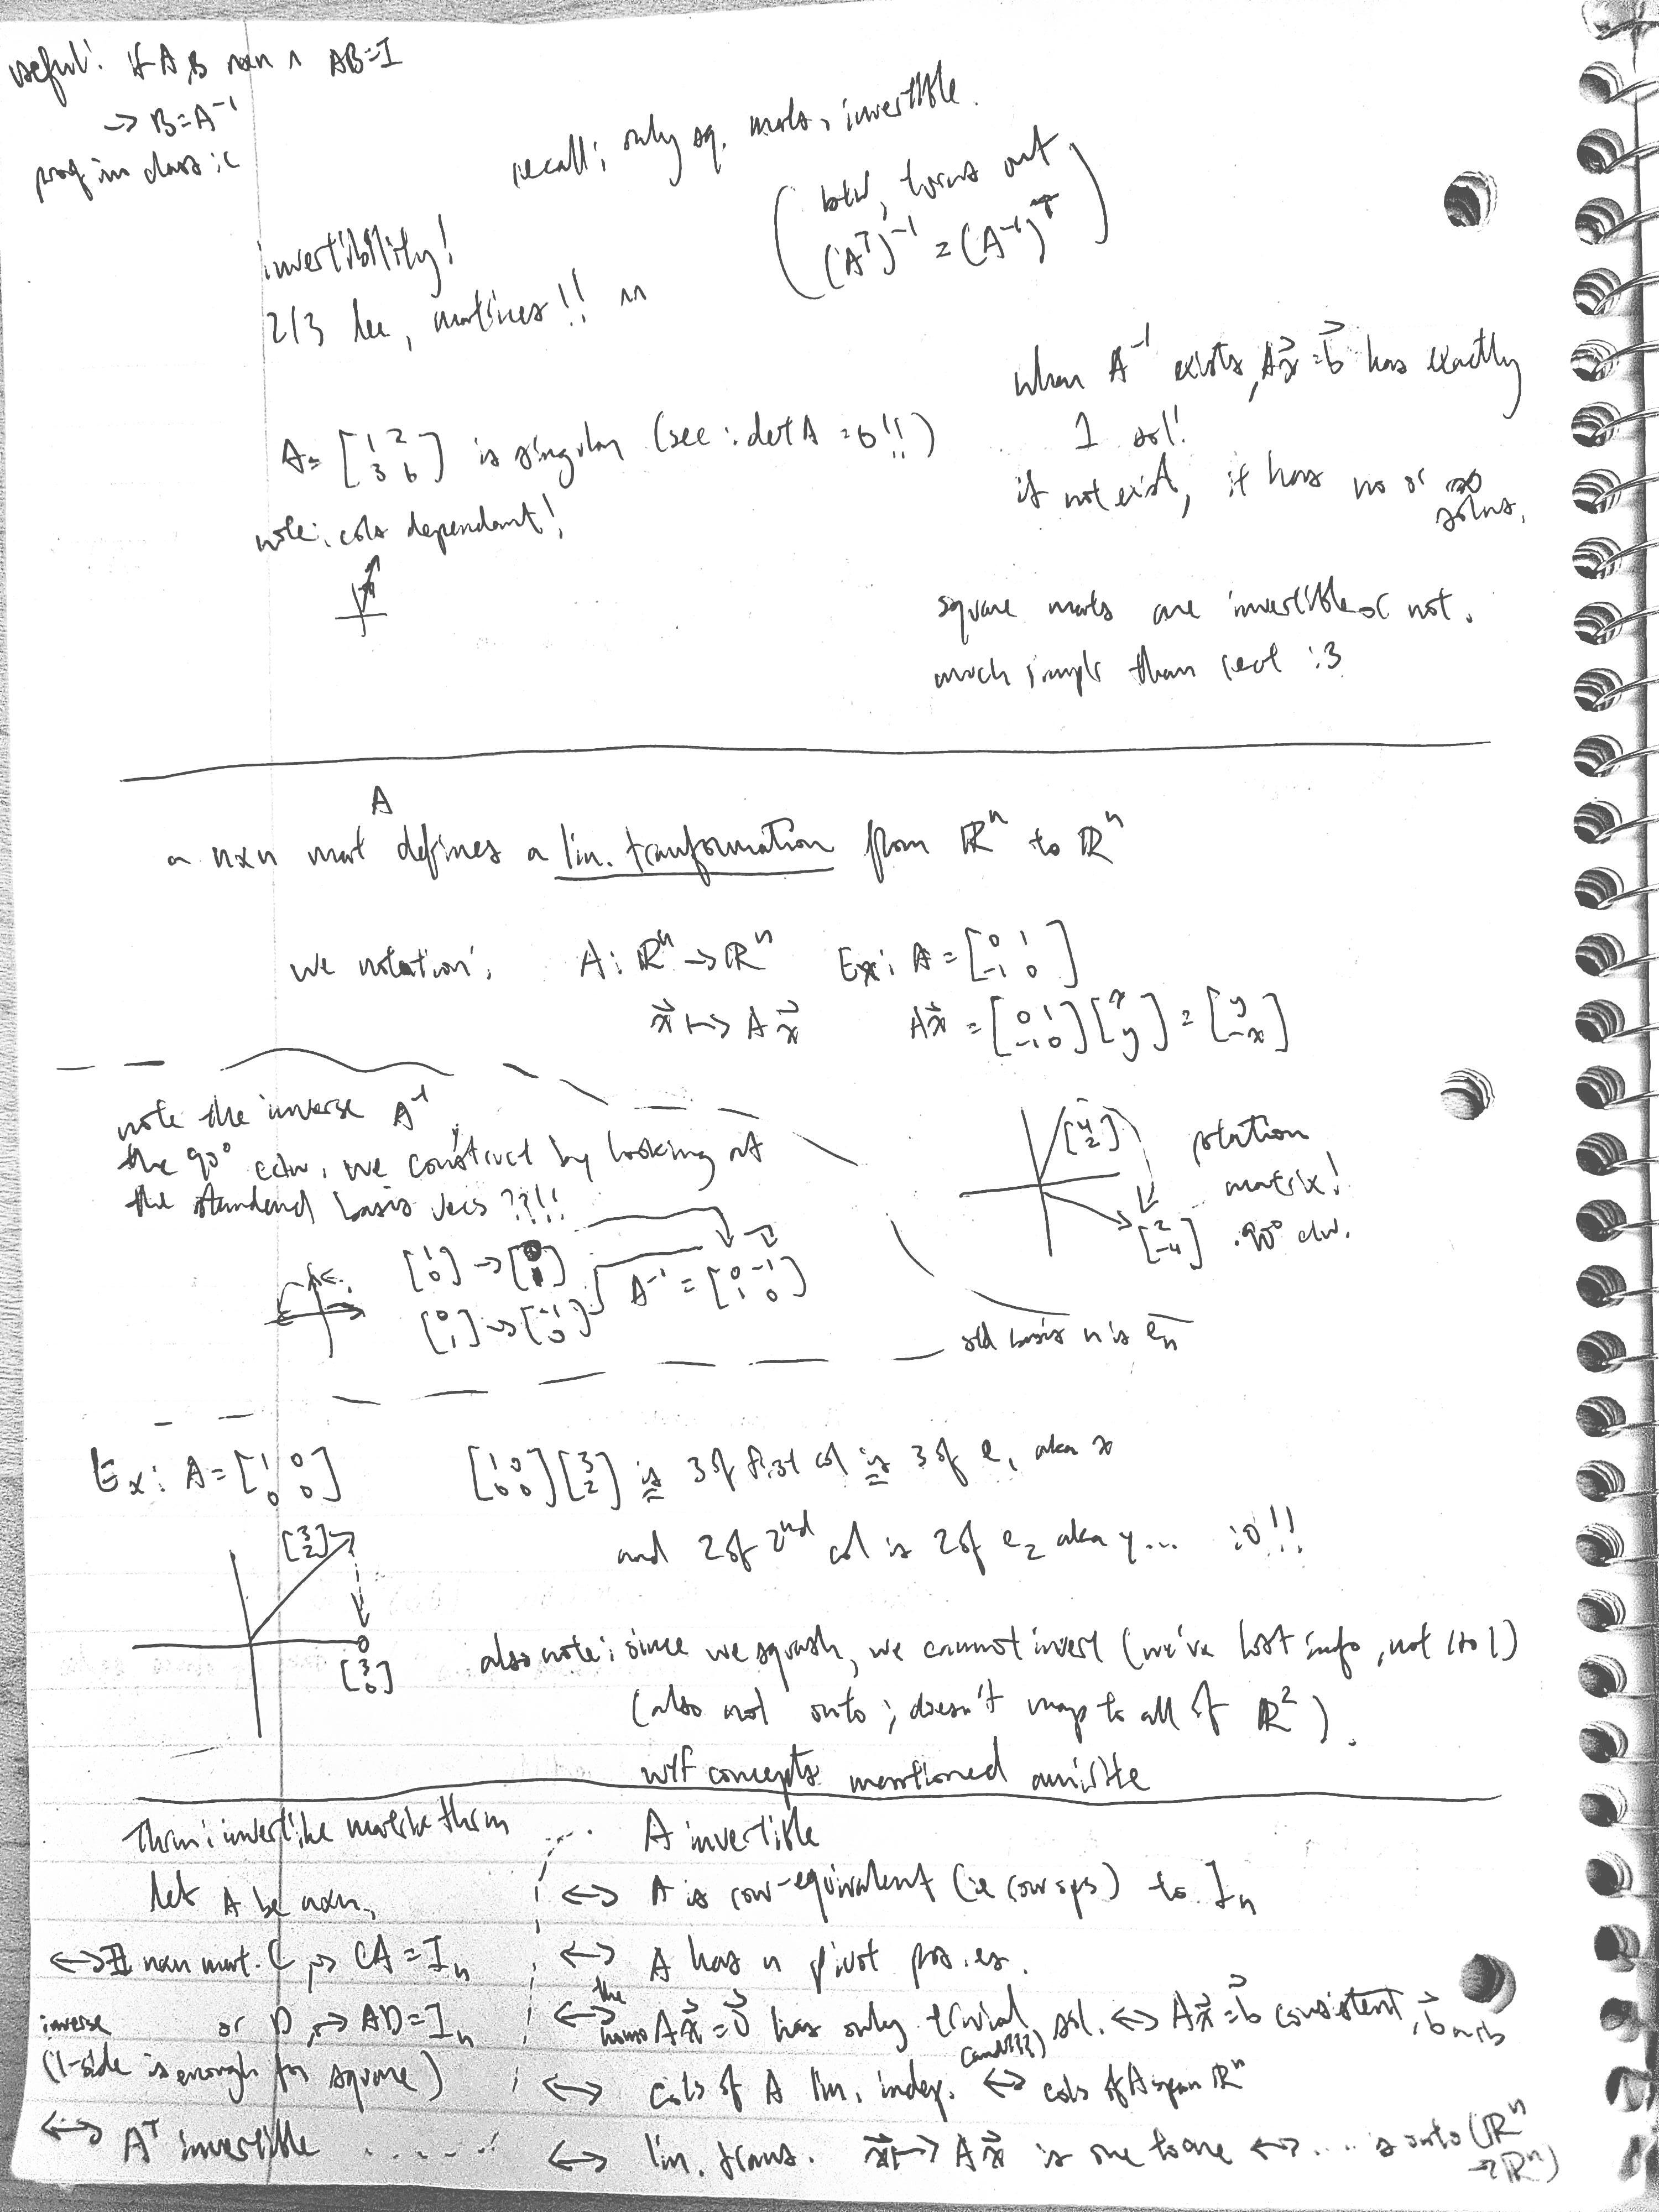 useful: if A,B nxn ∧ AB=I
→ B=A⁻¹
proof in class :c
recall: only sq. mats, invertible.
(btw, turns out
(Aᵀ)⁻¹ = (A⁻¹)ᵀ)
invertibility!
2/3 lec, matrices!! ^^
when A⁻¹ exists, Ax⃗ = b⃗ has exactly
1 sol!
if not exist, it has no or ∞
solns.
A = [1 2; 3 6] is singular (see: det A = 0!!)
note: cols dependant!
square mats are invertible or not.
much simplr than rect :3
A
a nxn mat defines a lin. tranformation from ℝⁿ to ℝⁿ
we notation: A: ℝⁿ → ℝⁿ
x⃗ ↦ Ax⃗
Ex: A = [0 1; -1 0]
Ax⃗ = [0 1; -1 0][x; y] = [y; -x]
note the inverse A⁻¹,
the 90° ccw, we construct by looking at
the standard basis vecs ??!!
[1; 0] → [0; 1]
[0; 1] → [-1; 0]
A⁻¹ = [0 -1; 1 0]
[4; 2]
[2; -4]
rotation
matrix!
90° clw.
std basis n is eₙ
Ex: A = [1 0; 0 0]
[1 0; 0 0][3; 2] is 3 of first col is 3 of e₁ aka x
and 2 of 2nd col is 2 of e₂ aka y... :o!!
[3; 2]
[3; 0]
also note: since we squash, we cannot invert (we've lost info, not 1 to 1)
(also not onto; doesn't map to all of ℝ²).
wtf concepts mentioned
Thm: invertible matrix thm
let A be nxn,
A invertible
↔ A is row-equivalent (ie row ops) to Iₙ
↔ A has n pivot pos.es.
↔ the homo Ax⃗ = 0⃗ has only trivial sol. ↔ Ax⃗ = b⃗ consistent,
↔ cols of A lin. indep. ↔ cols of A span ℝⁿ
↔ lin. trans. x⃗ ↦ Ax⃗ is one to one ↔ .... is onto (ℝⁿ
→ ℝⁿ)
↔ ∃ nxn mat. C, → CA = Iₙ
or D, → AD = Iₙ
inverse
(1-side is enough for square)
↔ Aᵀ invertible